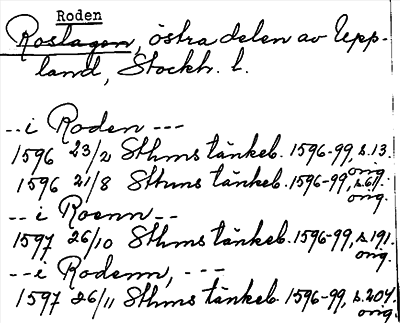 Roden
Roslagen, östra delen av Upp-
land, Stockh. l.
-- i Roden ---
1596 23/2 Sthms tänkeb. 1596-99, s.13.
orig.
1596 21/8 Sthms tänkeb. 1596-99, s.61.
orig.
-- i Roenn --
1597 26/10 Sthms tänkeb. 1596-99, s.191.
orig.
-- i Rodenn, ---
1597 26/11 Sthms tänkeb. 1596-99, s.204.
orig.